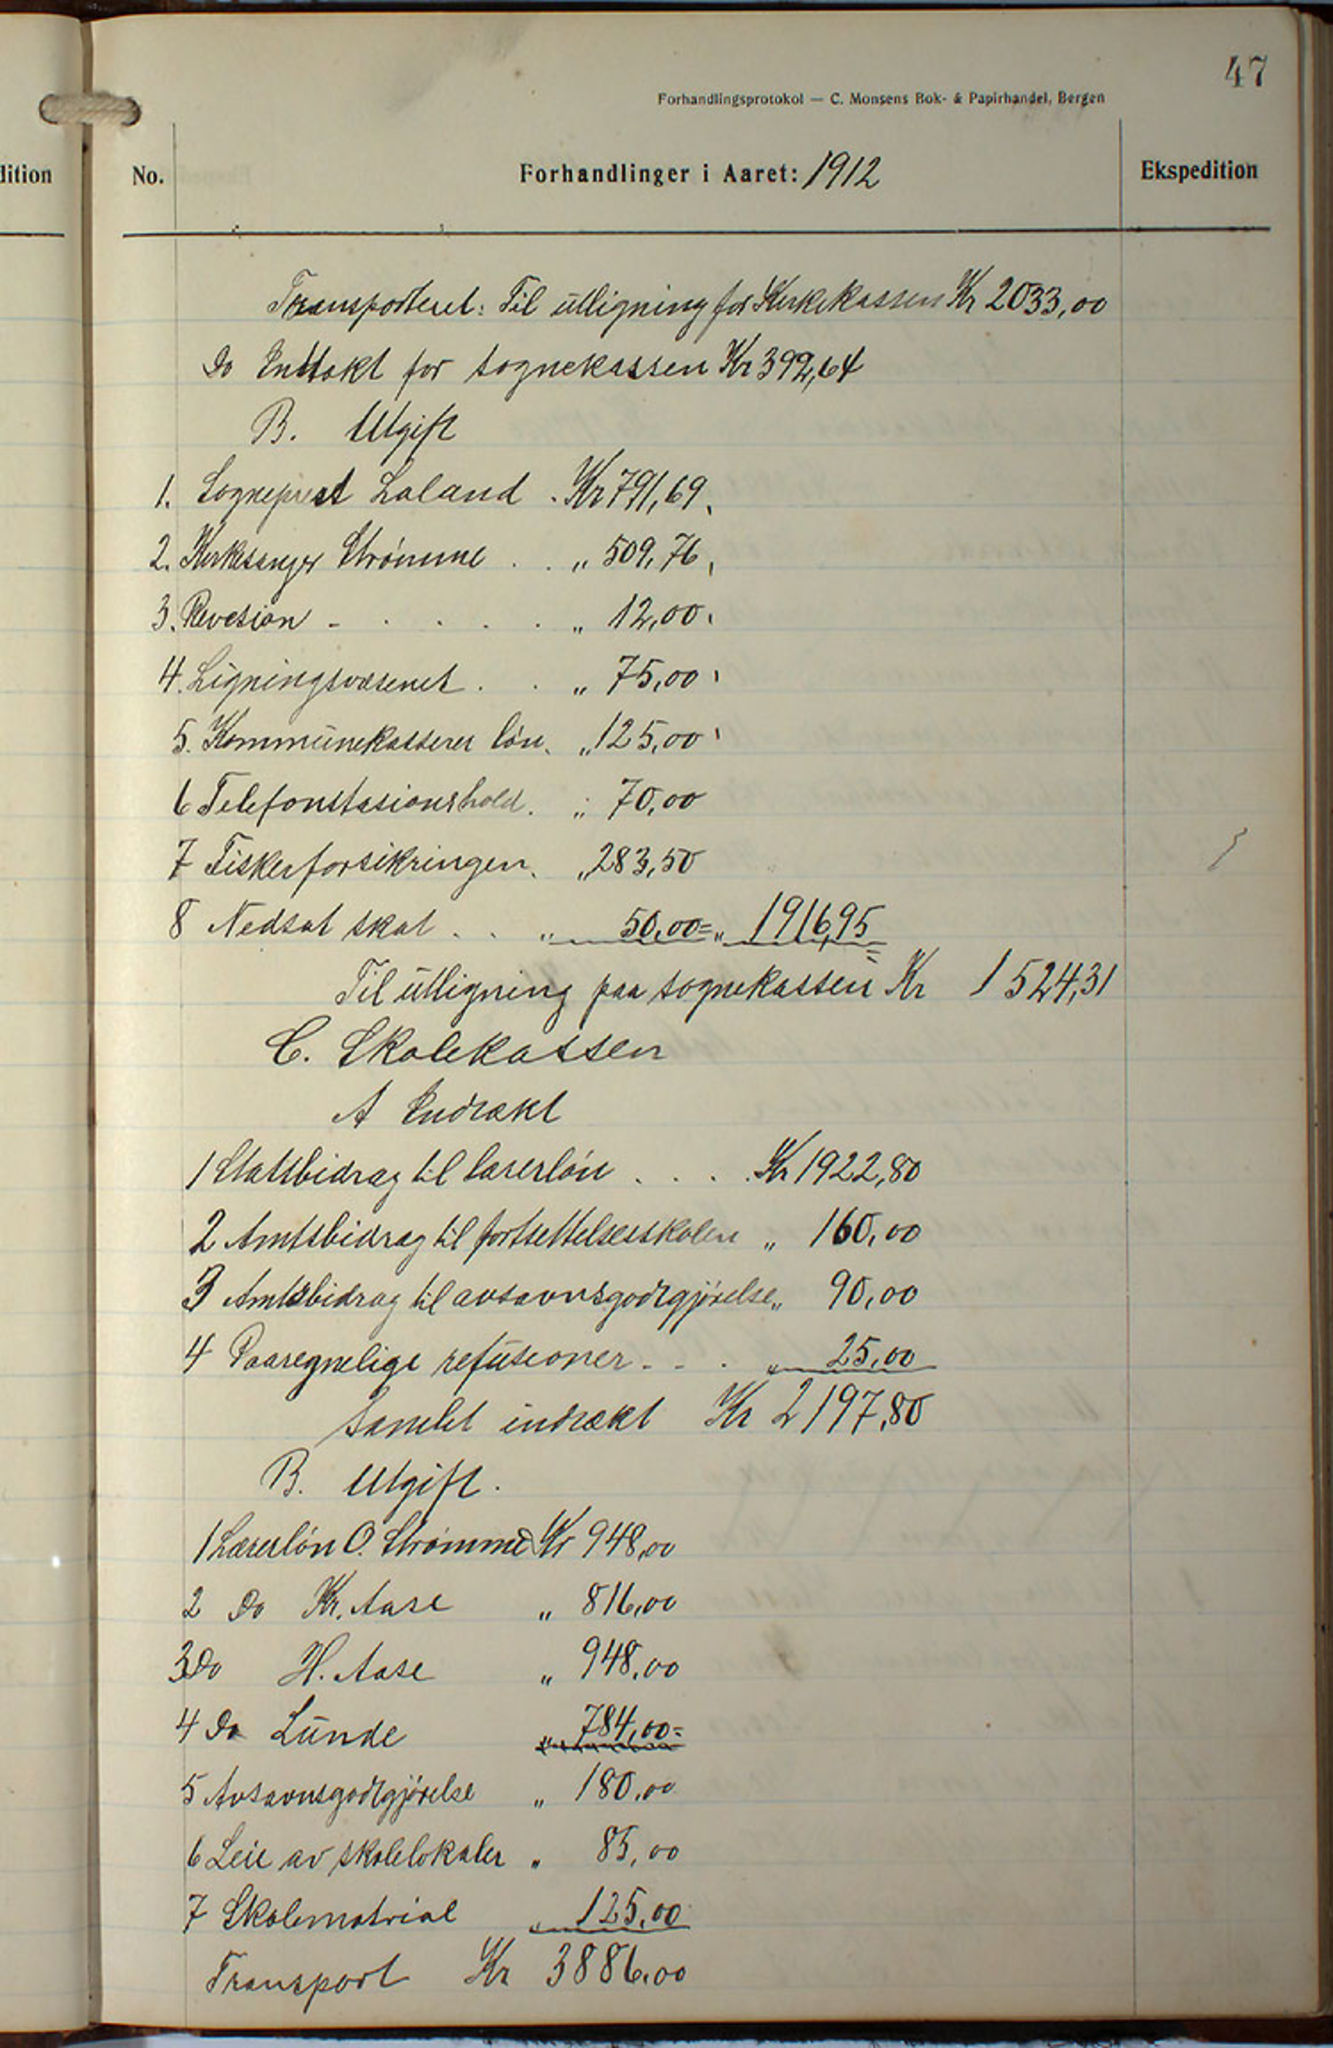 47
Forhandlingsprotokol — C. Monsens Bok- & Papirhandel, Bergen
dition
No.
Forhandlinger i Aaret: 1912
Ekspedition
Transporteret: Til utligning for Kirkekassen Kr 2033,00
Do Indtækt for sognekassen Kr 392,64
B. Utgift
1. Sogneprest Laland . Kr 791,69.
2. Kirkesanger Strømme . . „ 509,76,
3. Revesion - . . . . „ 12,00.
4. Ligningsvæsenet . . „ 75,00.
5. Kommunekasserer løn. „ 125,00
6 Telefonstasionshold. „ 70,00
7 Fiskerforsikringen. „ 283,50
8 Nedsat skat . . „ 50,00= „ 1916,95
Til utligning paa sognekassen Kr 1524,31
C. Skolekassen
A Indtækt
1 Statsbidrag til lærerløn . . . . Kr 1922,80
2 Amtsbidrag til fortsettelsesskolen „ 160,00
3 Amtsbidrag til avsavnsgodtgjørelse „ 90,00
4 Paaregnelige refusioner - - . „ 25,00
Samlet indtækt Kr 2197,80
B. Utgift.
1 Lærerløn O. Strømme Kr 948,00
2 Do Kr. Aase „ 816,00
3 Do H. Aase „ 948,00
4 Do Lunde „ 784,00=
5 Avsavnsgodtgjørelse „ 180,00
6 Leie av skolelokaler „ 85,00
7 Skolematrial „ 125,00
Transport Kr 3886,00